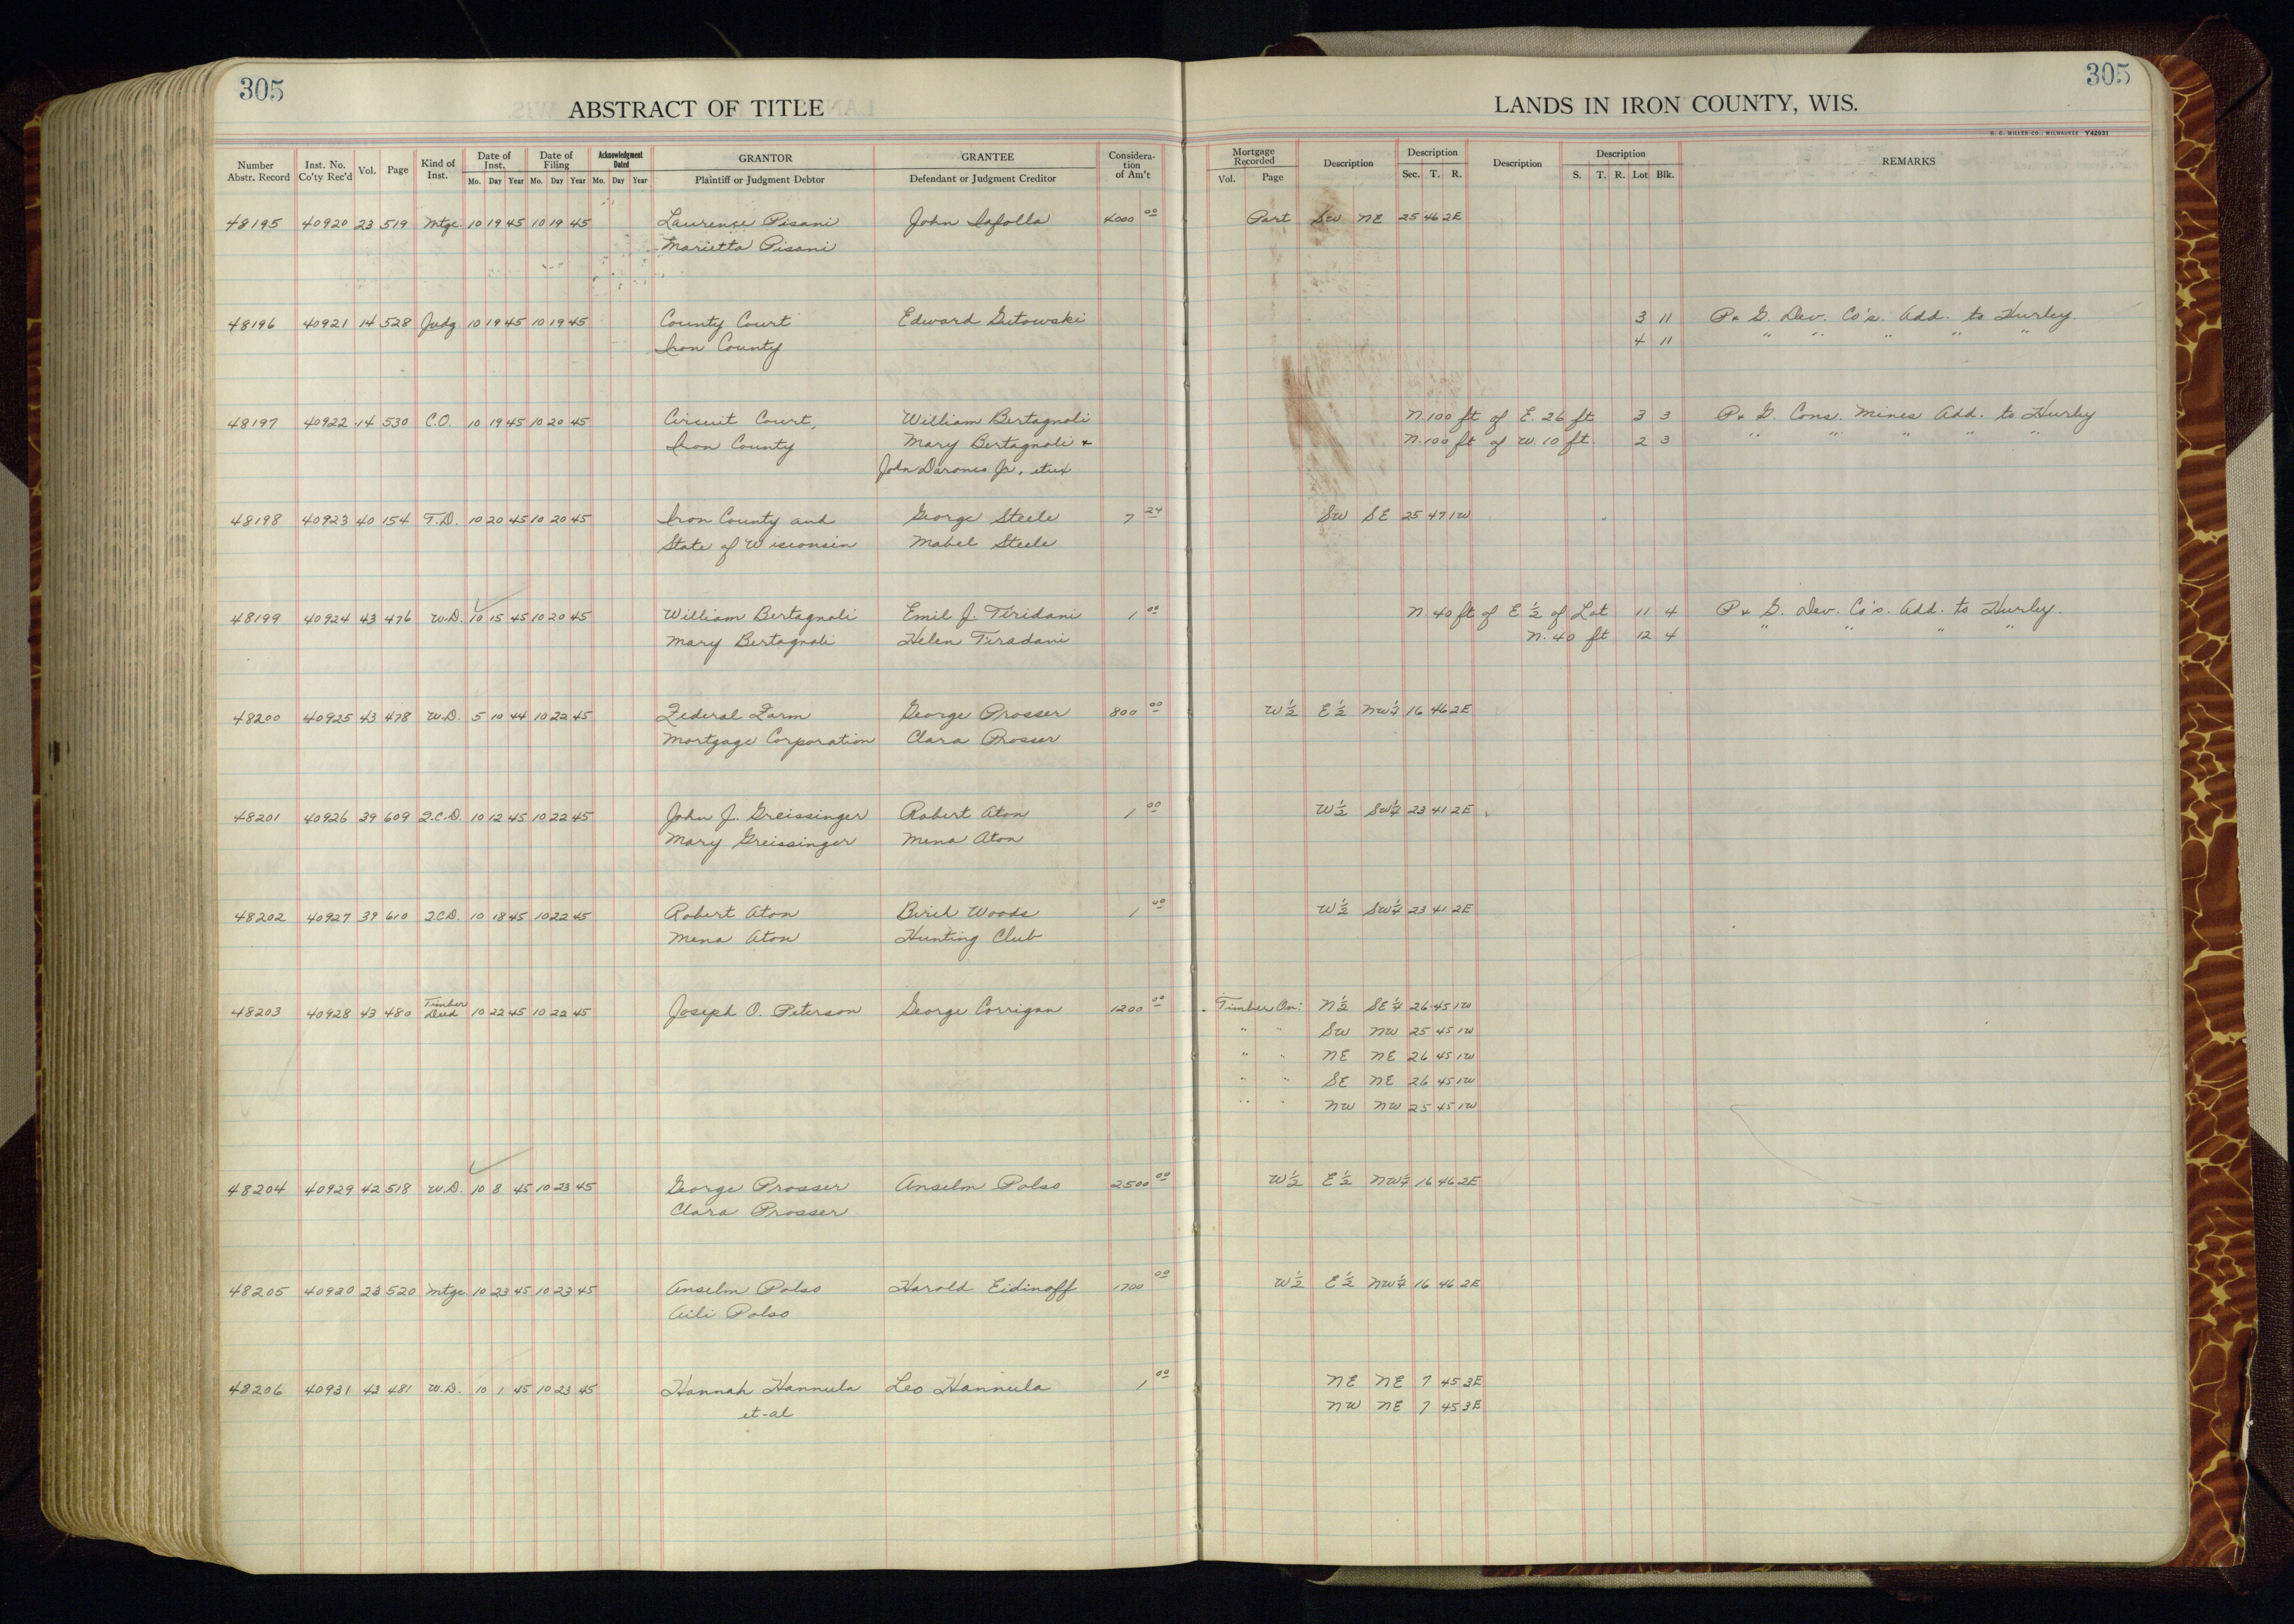 305
305
ABSTRACT OF TITLE
LANDS IN IRON COUNTY, WIS.
H. C. MILLER CO., MILWAUKEE Y42931
Number Abstr. Record Inst. No. Co'ty Rec'd Vol. Page Kind of Inst. Date of Inst. Mo. Day Year Date of Filing Mo. Day Year Acknowledgment Dated Mo. Day Year GRANTOR Plaintiff or Judgment Debtor GRANTEE Defendant or Judgment Creditor Consideration of Am't Mortgage Recorded Vol. Page Description Description Sec. T. R. Description Description S. T. R. Lot Blk. REMARKS
48195 40920 23 519 Mtge. 10 19 45 10 19 45 Laurence Pisani John Iafolla 4000 00 Part SW NE 25 46 2E
Marietta Pisani
48196 40921 14 528 Judg 10 19 45 10 19 45 County Court Edward Gutowski 3 11 P & G. Dev. Co's. Add. to Hurley.
Iron County 4 11 " " " " "
48197 40922 14 530 C.O. 10 19 45 10 20 45 Circuit Court, William Bertagnoli N. 100 ft of E. 26 ft 3 3 P & G. Cons. Mines Add. to Hurley
Iron County Mary Bertagnoli & N. 100 ft of W. 10 ft. 2 3 " " " " "
John Darones Jr. etux
48198 40923 40 154 T.D. 10 20 45 10 20 45 Iron County and George Steele 7 24 SW SE 25 47 1W
State of Wisconsin Mabel Steele
48199 40924 43 476 W.D. 10 15 45 10 20 45 William Bertagnoli Emil J. Tiridani 1 00 N. 40 ft of E ½ of Lot 11 4 P & G. Dev. Co's. Add. to Hurley.
Mary Bertagnoli Helen Tiradani N. 40 ft 12 4 " " " "
48200 40925 43 478 W.D. 5 10 44 10 22 45 Federal Farm George Prosser 800 00 W½ E½ NW¼ 16 46 2E
Mortgage Corporation Clara Prosser
48201 40926 39 609 Q.C.D. 10 12 45 10 22 45 John J. Greissinger Robert Aton 1 00 W½ SW¼ 23 41 2E
Mary Greissinger Mena Aton
48202 40927 39 610 Q.C.D. 10 18 45 10 22 45 Robert Aton Birch Woods 1 00 W½ SW¼ 23 41 2E
Mena Aton Hunting Club
48203 40928 43 480 Timber Deed 10 22 45 10 22 45 Joseph O. Peterson George Corrigan 1200 00 Timber On: N½ SE¼ 26 45 1W
" " SW NW 25 45 1W
" " NE NE 26 45 1W
" " SE NE 26 45 1W
" " NW NW 25 45 1W
48204 40929 42 518 W.D. 10 8 45 10 23 45 George Prosser Anselm Polso 2500 00 W½ E½ NW¼ 16 46 2E
Clara Prosser
48205 40930 23 520 Mtge. 10 23 45 10 23 45 Anselm Polso Harold Eidinoff 1700 00 W½ E½ NW¼ 16 46 2E
Aili Polso
48206 40931 43 481 W.D. 10 1 45 10 23 45 Hannah Hannula Leo Hannula 1 00 NE NE 7 45 3E
et-al NW NE 7 45 3E